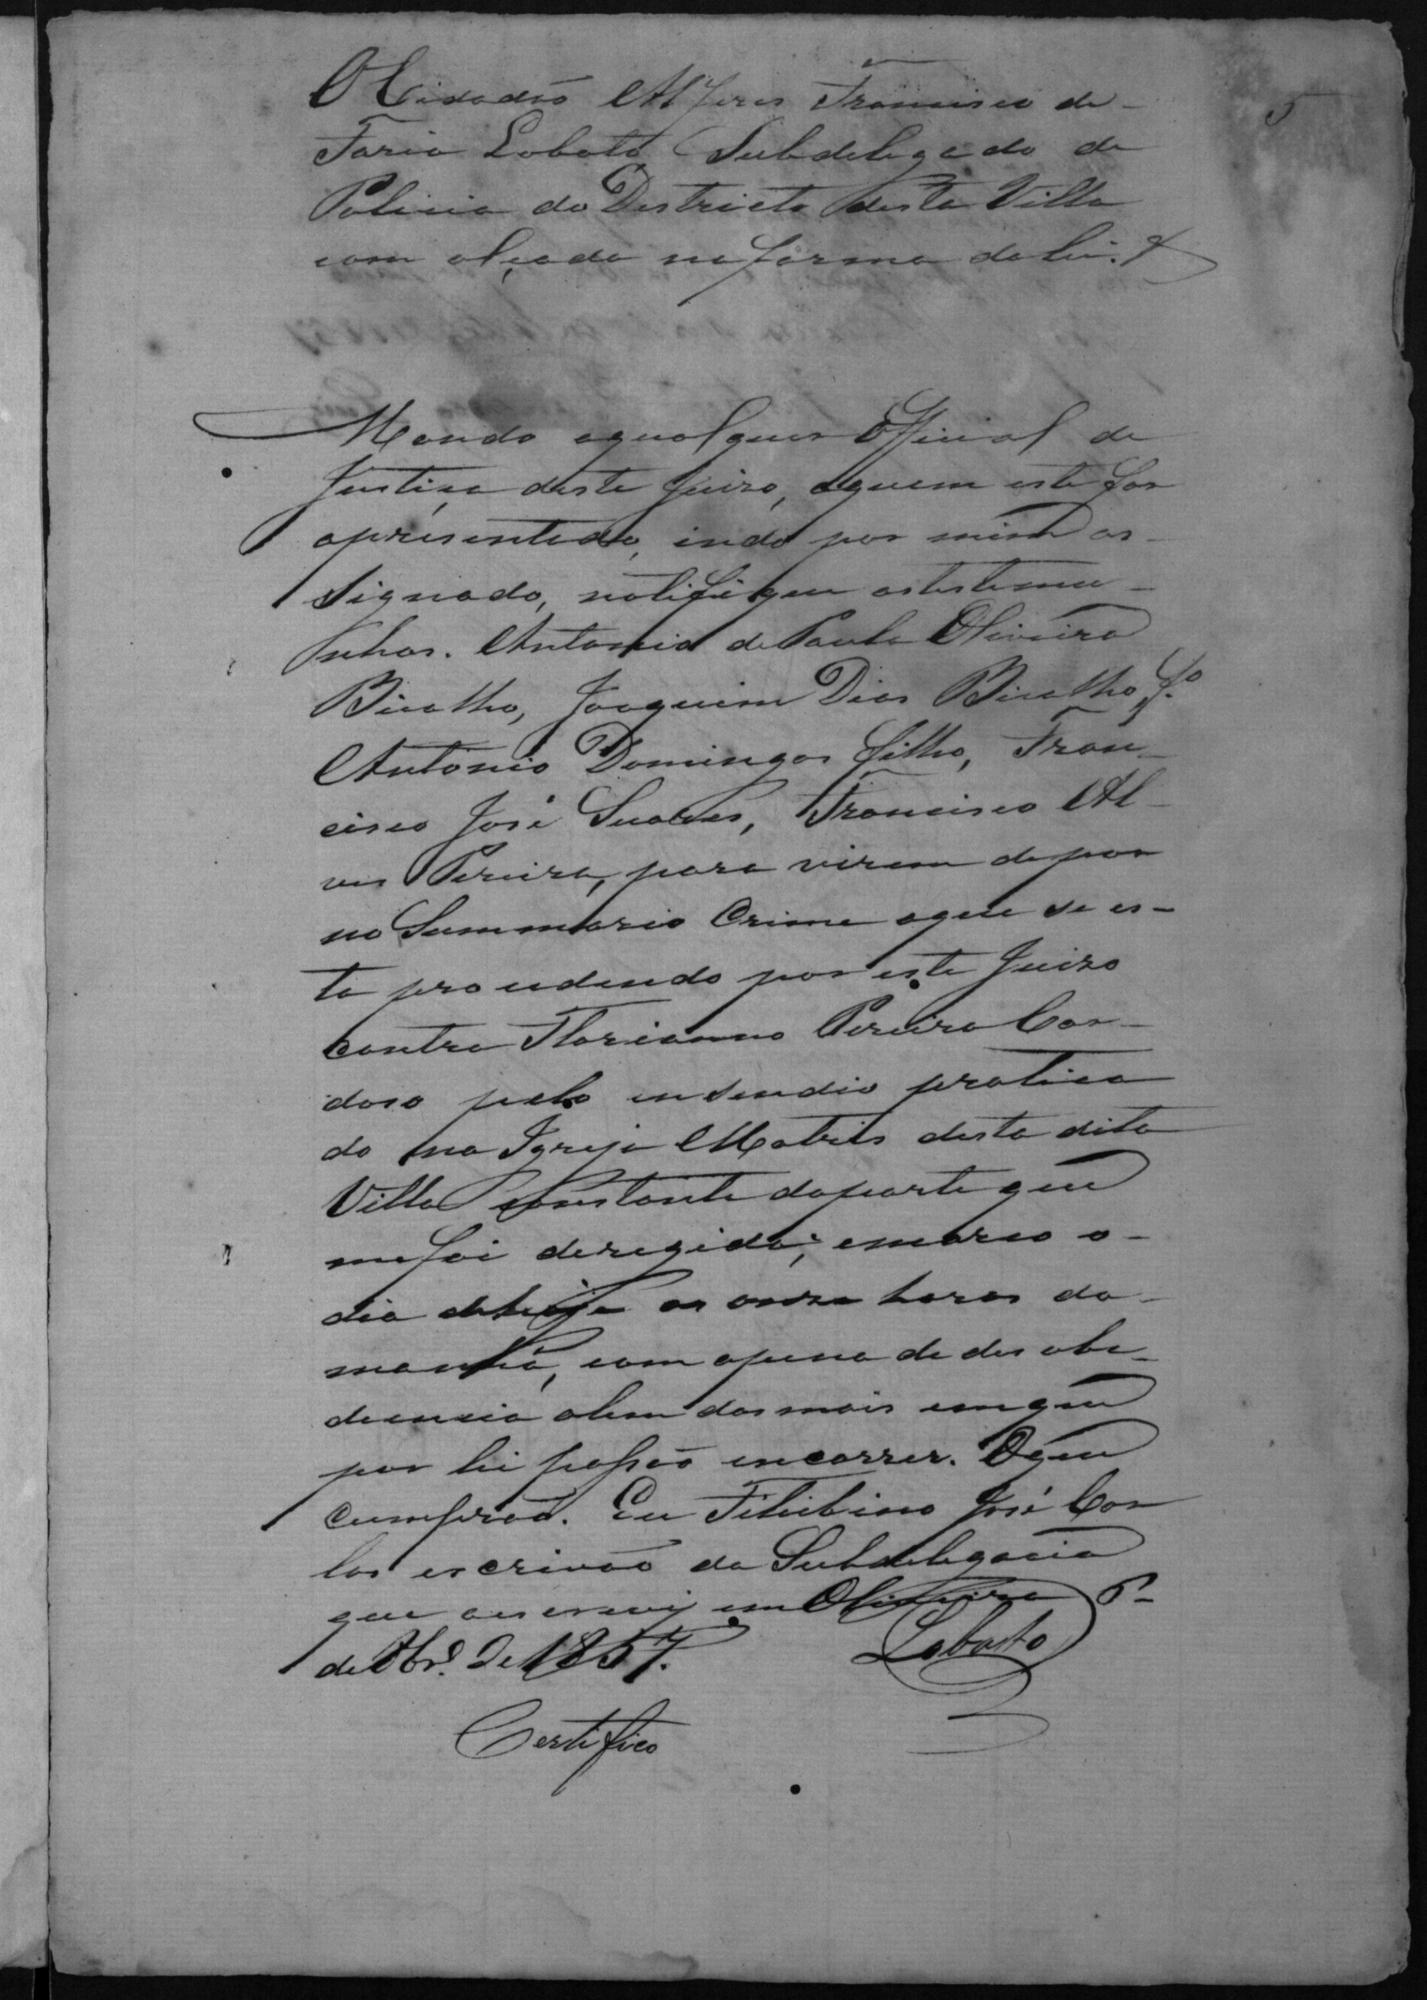 5
O Cidadão Alferes Francisco de
Faria Lobato Subdelegado de
Policia do Destricto desta Villa
com alçada na forma da lei. &
Mando aqualquer Official de
Justiça deste Juizo, aquem este for
apresentado, indo por mim as-
signado, notifique astestemu-
nhas. Antonio de Paula Oliveira
Bicalho, Joaquim Dias Bicalho, f.º
Antonio Domingos filho, Fran-
cisco José Suares, Francisco Al-
ves Pereira, para virem depor
no Summario Crime aque se es-
ta procedendo por este Juizo
contra Florianno Pereira Car-
doso pelo insendio pratica
do na Igreja Matris desta dita
Villa constante daparte que
me foi deregida; emarco o-
dia dehoje as onze horas da-
manhã, com apena de desobe-
diencia alem das mais emque
por lei possão encorrer. Oque
cumprão. Eu José Car
los escrivão da Subdelegacia
que oescrevi em Oliveira 6-
de Abr.º de 1857. Lobato
Certifico